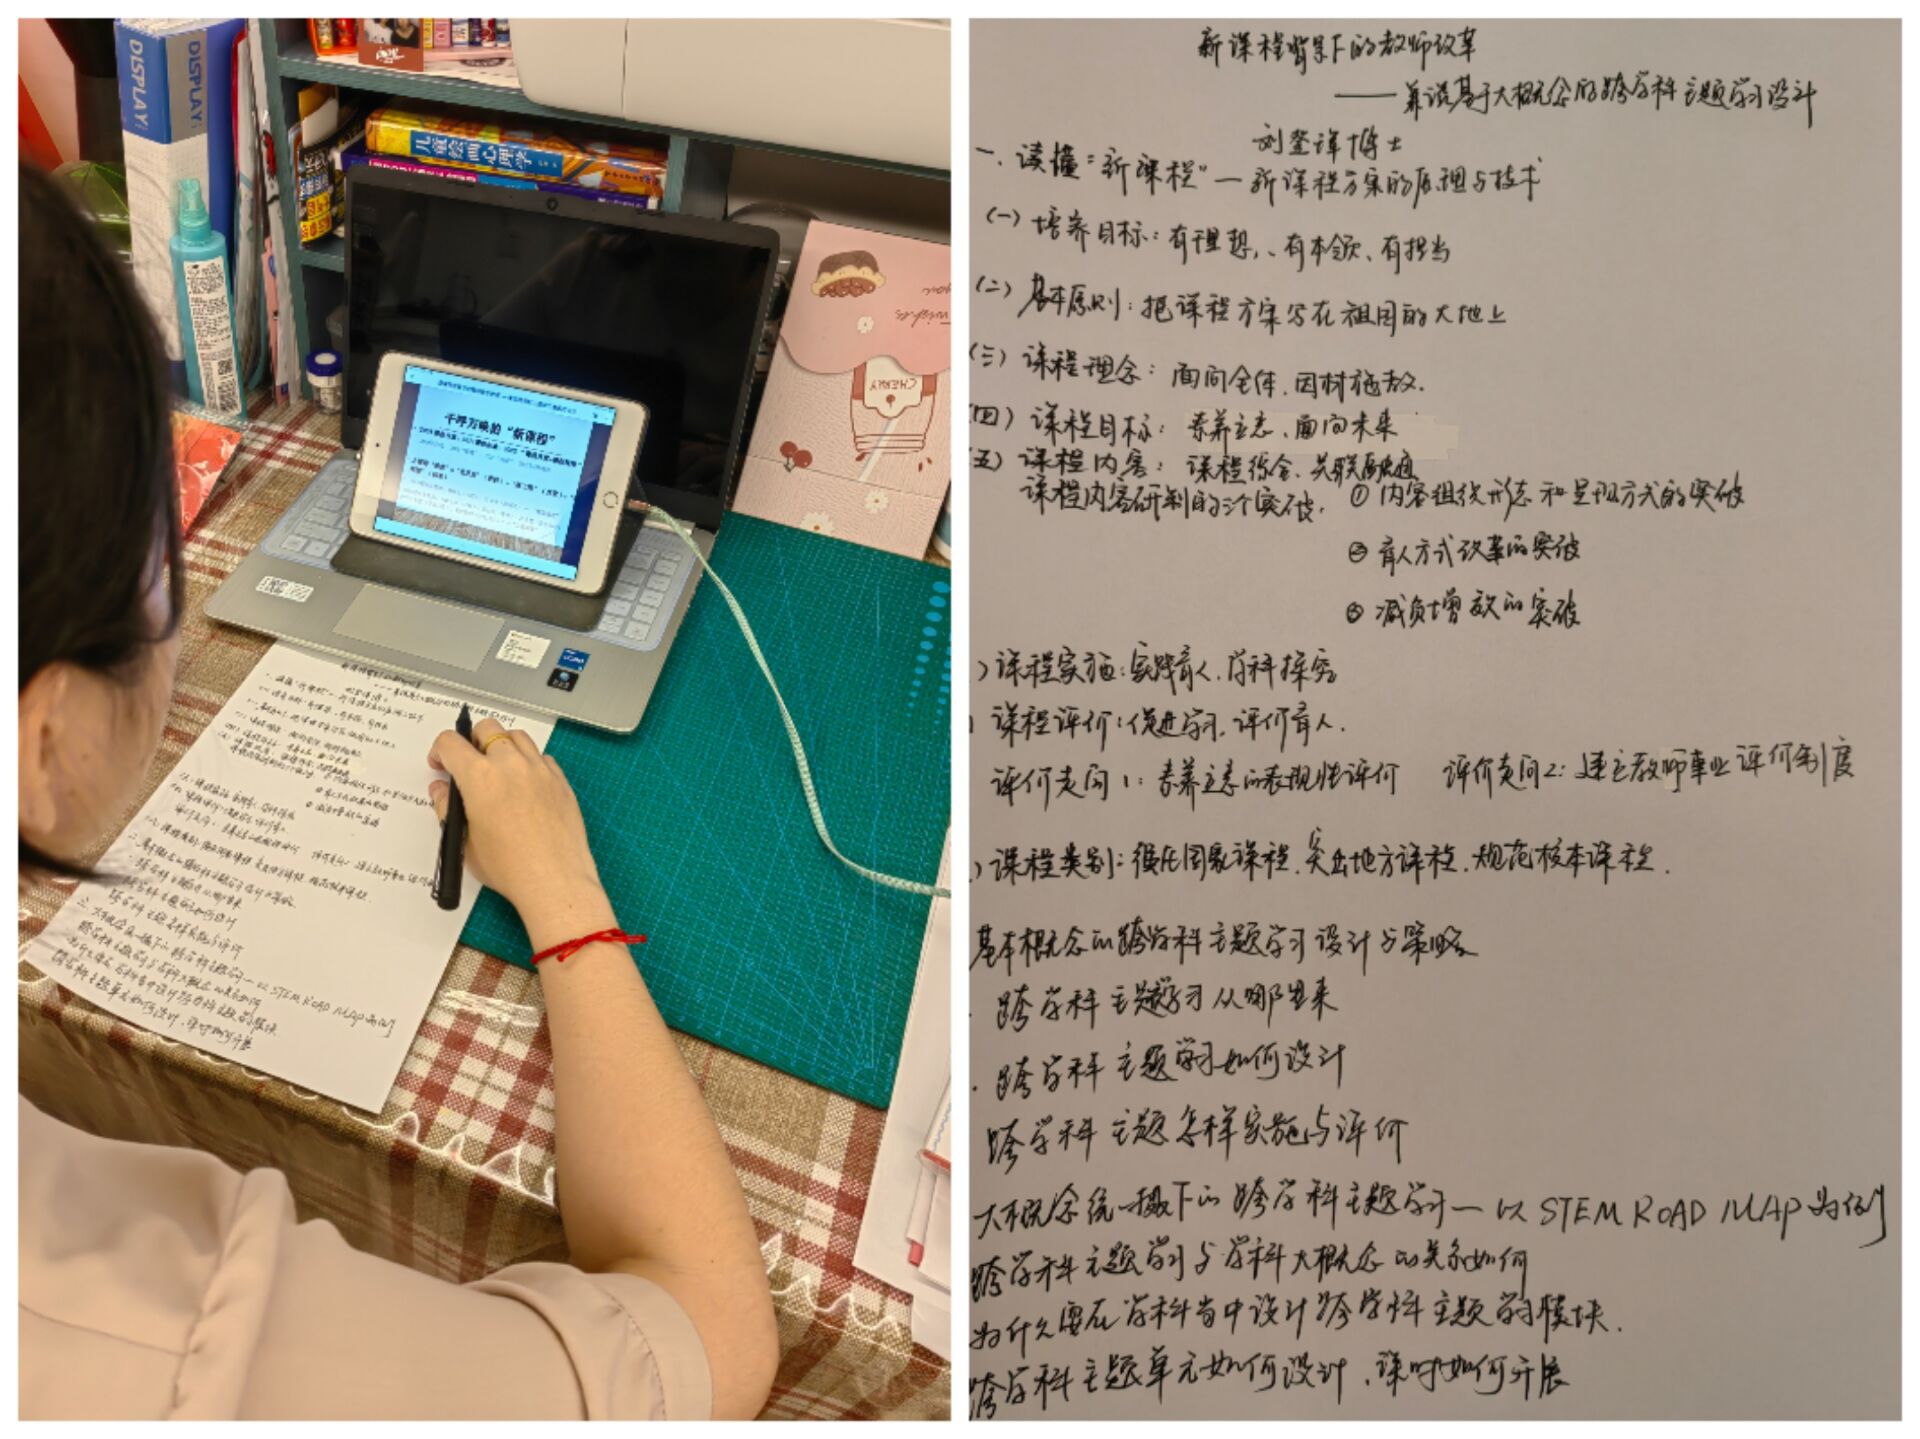 DISPLAY
DISPLAY
儿童绘画心理学
CHERRY
千呼万唤的“新课程”
新课程背景下的教师改革
——兼谈基于大概念的跨学科主题学习设计
刘登珲博士
一、读懂“新课程”—新课程方案的原理与技术
(一)培养目标：有理想、有本领、有担当
(二)基本原则：把课程方案写在祖国的大地上
(三)课程理念：面向全体、因材施教.
(四)课程目标：素养立意、面向未来
(五)课程内容：课程综合、关联融通
课程内容研制的三个突破. ①内容组织形态和呈现方式的突破
②育人方式改革的突破
③减负增效的突破
)课程实施：实践育人、学科探究
)课程评价：促进学习、评价育人.
评价走向1：素养立意的表现性评价 评价走向2：建立教师专业评价制度
)课程类别：强化国家课程、突出地方课程、规范校本课程.
基本概念的跨学科主题学习设计与策略
跨学科主题学习从哪里来
跨学科主题学习如何设计
跨学科主题怎样实施与评价
大概念统摄下的跨学科主题学习—以STEM ROAD MAP为例
跨学科主题学习与学科大概念的关系如何
为什么要在学科当中设计跨学科主题学习模块.
跨学科主题单元如何设计、课时如何开展